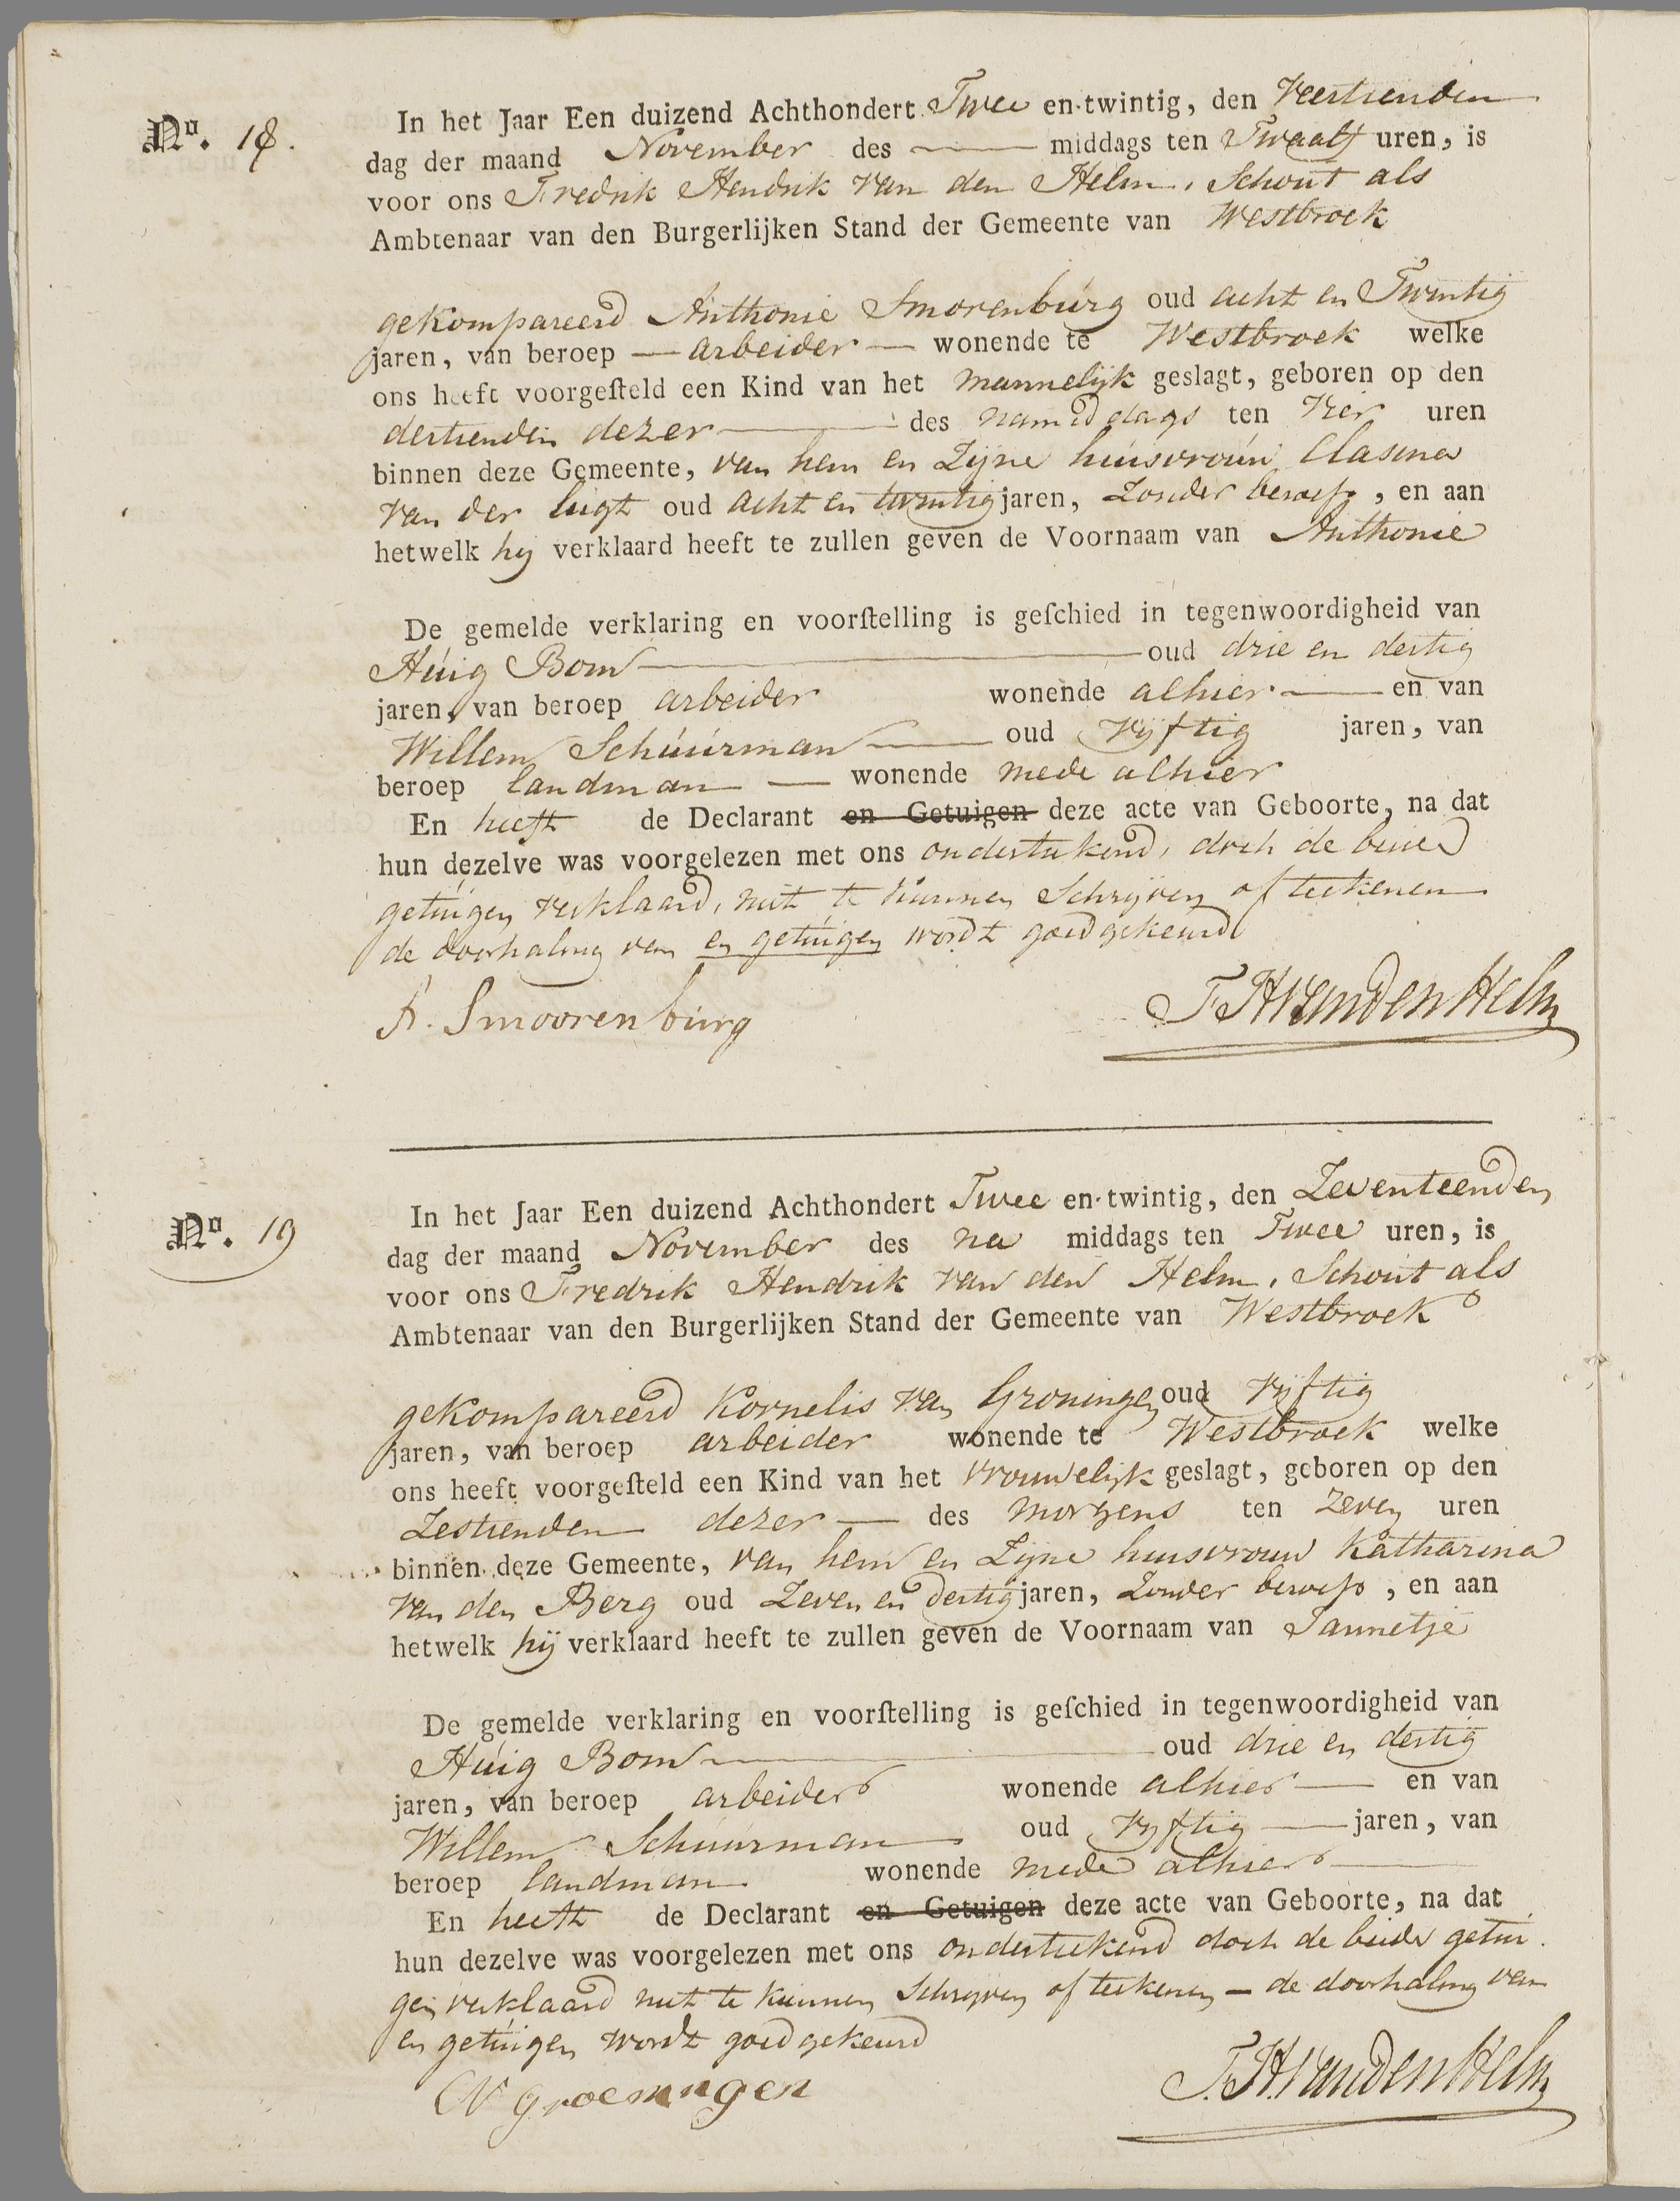 No. 18.
In het Jaar Een duizend Achthondert Twee en-twintig, den Veertienden
dag der maand November des — middags ten Twaalf uren, is
voor ons Fredrik Hendrik van den Helm, Schout als
Ambtenaar van den Burgerlijken Stand der Gemeente van Westbroek
gekompareerd Anthonie Smorenburg oud acht en Twintig
jaren, van beroep — arbeider — wonende te Westbroek welke
ons heeft voorgeſteld een Kind van het mannelijk geslagt, geboren op den
dertienden dezer — des namiddags ten vier uren
binnen deze Gemeente, van hem en Zijne huisvrouw Clasina
van der lugt oud acht en twintig jaren, Zonder beroep, en aan
hetwelk hij verklaard heeft te zullen geven de Voornaam van Anthonie
De gemelde verklaring en voorſtelling is geſchied in tegenwoordigheid van
Huig Bom — oud drie en dertig
jaren, van beroep arbeider wonende alhier — en van
Willem Schuurman — oud vijftig jaren, van
beroep landman — wonende mede alhier
En heeft de Declarant en Getuigen deze acte van Geboorte, na dat
hun dezelve was voorgelezen met ons ondertekend, doch de beide
getuigen verklaard, niet te kunnen Schrijven of teekenen
de doorhaling van en getuigen wordt goedgekeurd
A. Smoorenburg
F. H. van den Helm
No. 19
In het Jaar Een duizend Achthondert Twee en-twintig, den Zeventeenden
dag der maand November des na middags ten Twee uren, is
voor ons Fredrik Hendrik van den Helm, Schout als
Ambtenaar van den Burgerlijken Stand der Gemeente van Westbroek
gekompareerd Kornelis van Groningen oud vijftig
jaren, van beroep arbeider wonende te Westbroek welke
ons heeft voorgeſteld een Kind van het vrouwelijk geslagt, geboren op den
Zestienden dezer — des morgens ten zeven uren
binnen deze Gemeente, van hem en Zijne huisvrouw Katharina
van den Berg oud Zeven en dertig jaren, Zonder beroep, en aan
hetwelk hij verklaard heeft te zullen geven de Voornaam van Jannetje
De gemelde verklaring en voorſtelling is geſchied in tegenwoordigheid van
Huig Bom — oud drie en dertig
jaren, van beroep arbeider wonende alhier — en van
Willem Schuurman oud vijftig — jaren, van
beroep landman wonende mede alhier —
En heeft de Declarant en Getuigen deze acte van Geboorte, na dat
hun dezelve was voorgelezen met ons ondertekend doch de beide getui-
gen verklaard niet te kunnen Schrijven of teekenen — de doorhaling van
en getuigen wordt goedgekeurd
CV groeningen
F. H. van den Helm